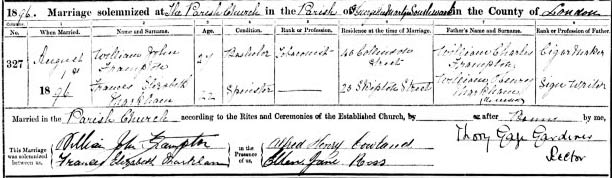 1896. Marriage solemnized at The Parish Church in the Parish of St George the Martyr Southwark in the County of London
No. When Married. Name and Surname. Age. Condition. Rank or Profession. Residence at the time of Marriage. Father's Name and Surname. Rank or Profession of Father.
327 August 1st 1896 William John Frampton Bachelor Tobacconist Street William Charles Frampton Cigar Maker
Frances Elizabeth Markham 22 Spinster Street William Markham Sign Writer
Married in the Parish Church according to the Rites and Ceremonies of the Established Church, by or after Banns by me,
This Marriage was solemnized between us, William John Frampton Frances Elizabeth Markham in the Presence of us, Alfred Henry Rowland Ellen Jane Ross Thory Gage Gardiner Rector